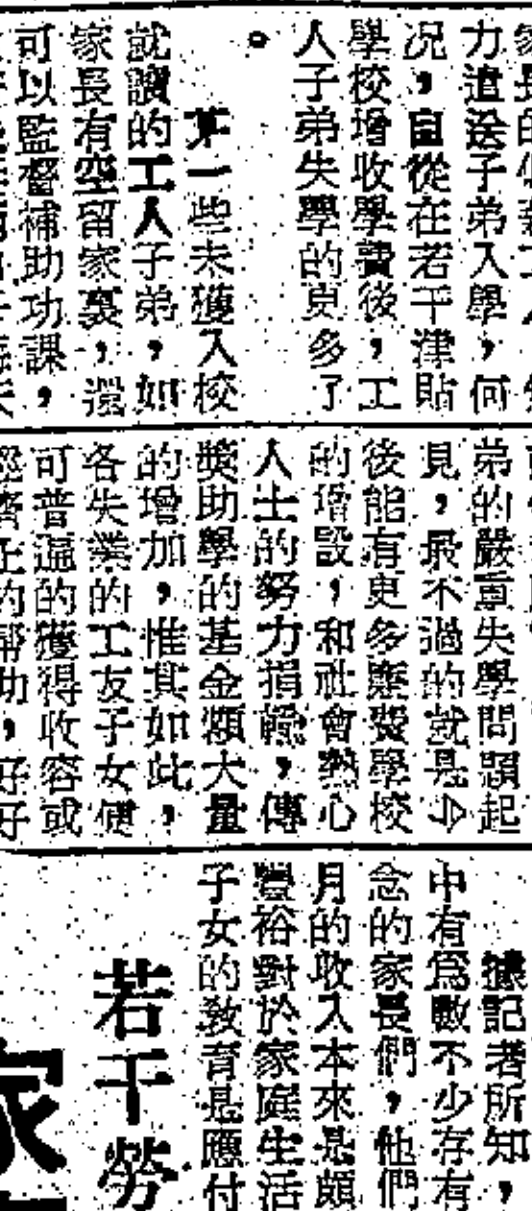 力遣送子弟入學，何
况，自從在若干津貼
學校增收學費後，工
人子弟失學的更多了
。
第一些未獲入校
就讀的工人子弟，如
家長有空留家裏，還
可以監督補助功課，
弟的嚴重失學問題起
見，最不過的就是今
後能有更多廉費學校
的增設，和社會熱心
人士的努力捐輸，傳
奬助學的基金額大量
的增加，惟其如此，
各失業的工友子女便
可普遍的獲得收容或
經濟上的幫助，好好
據記者所知，
中有爲數不少存有
念的家長們，他們
月的收入本來是頗
豐裕對於家庭生活
子女的教育是應付
若干勞
家